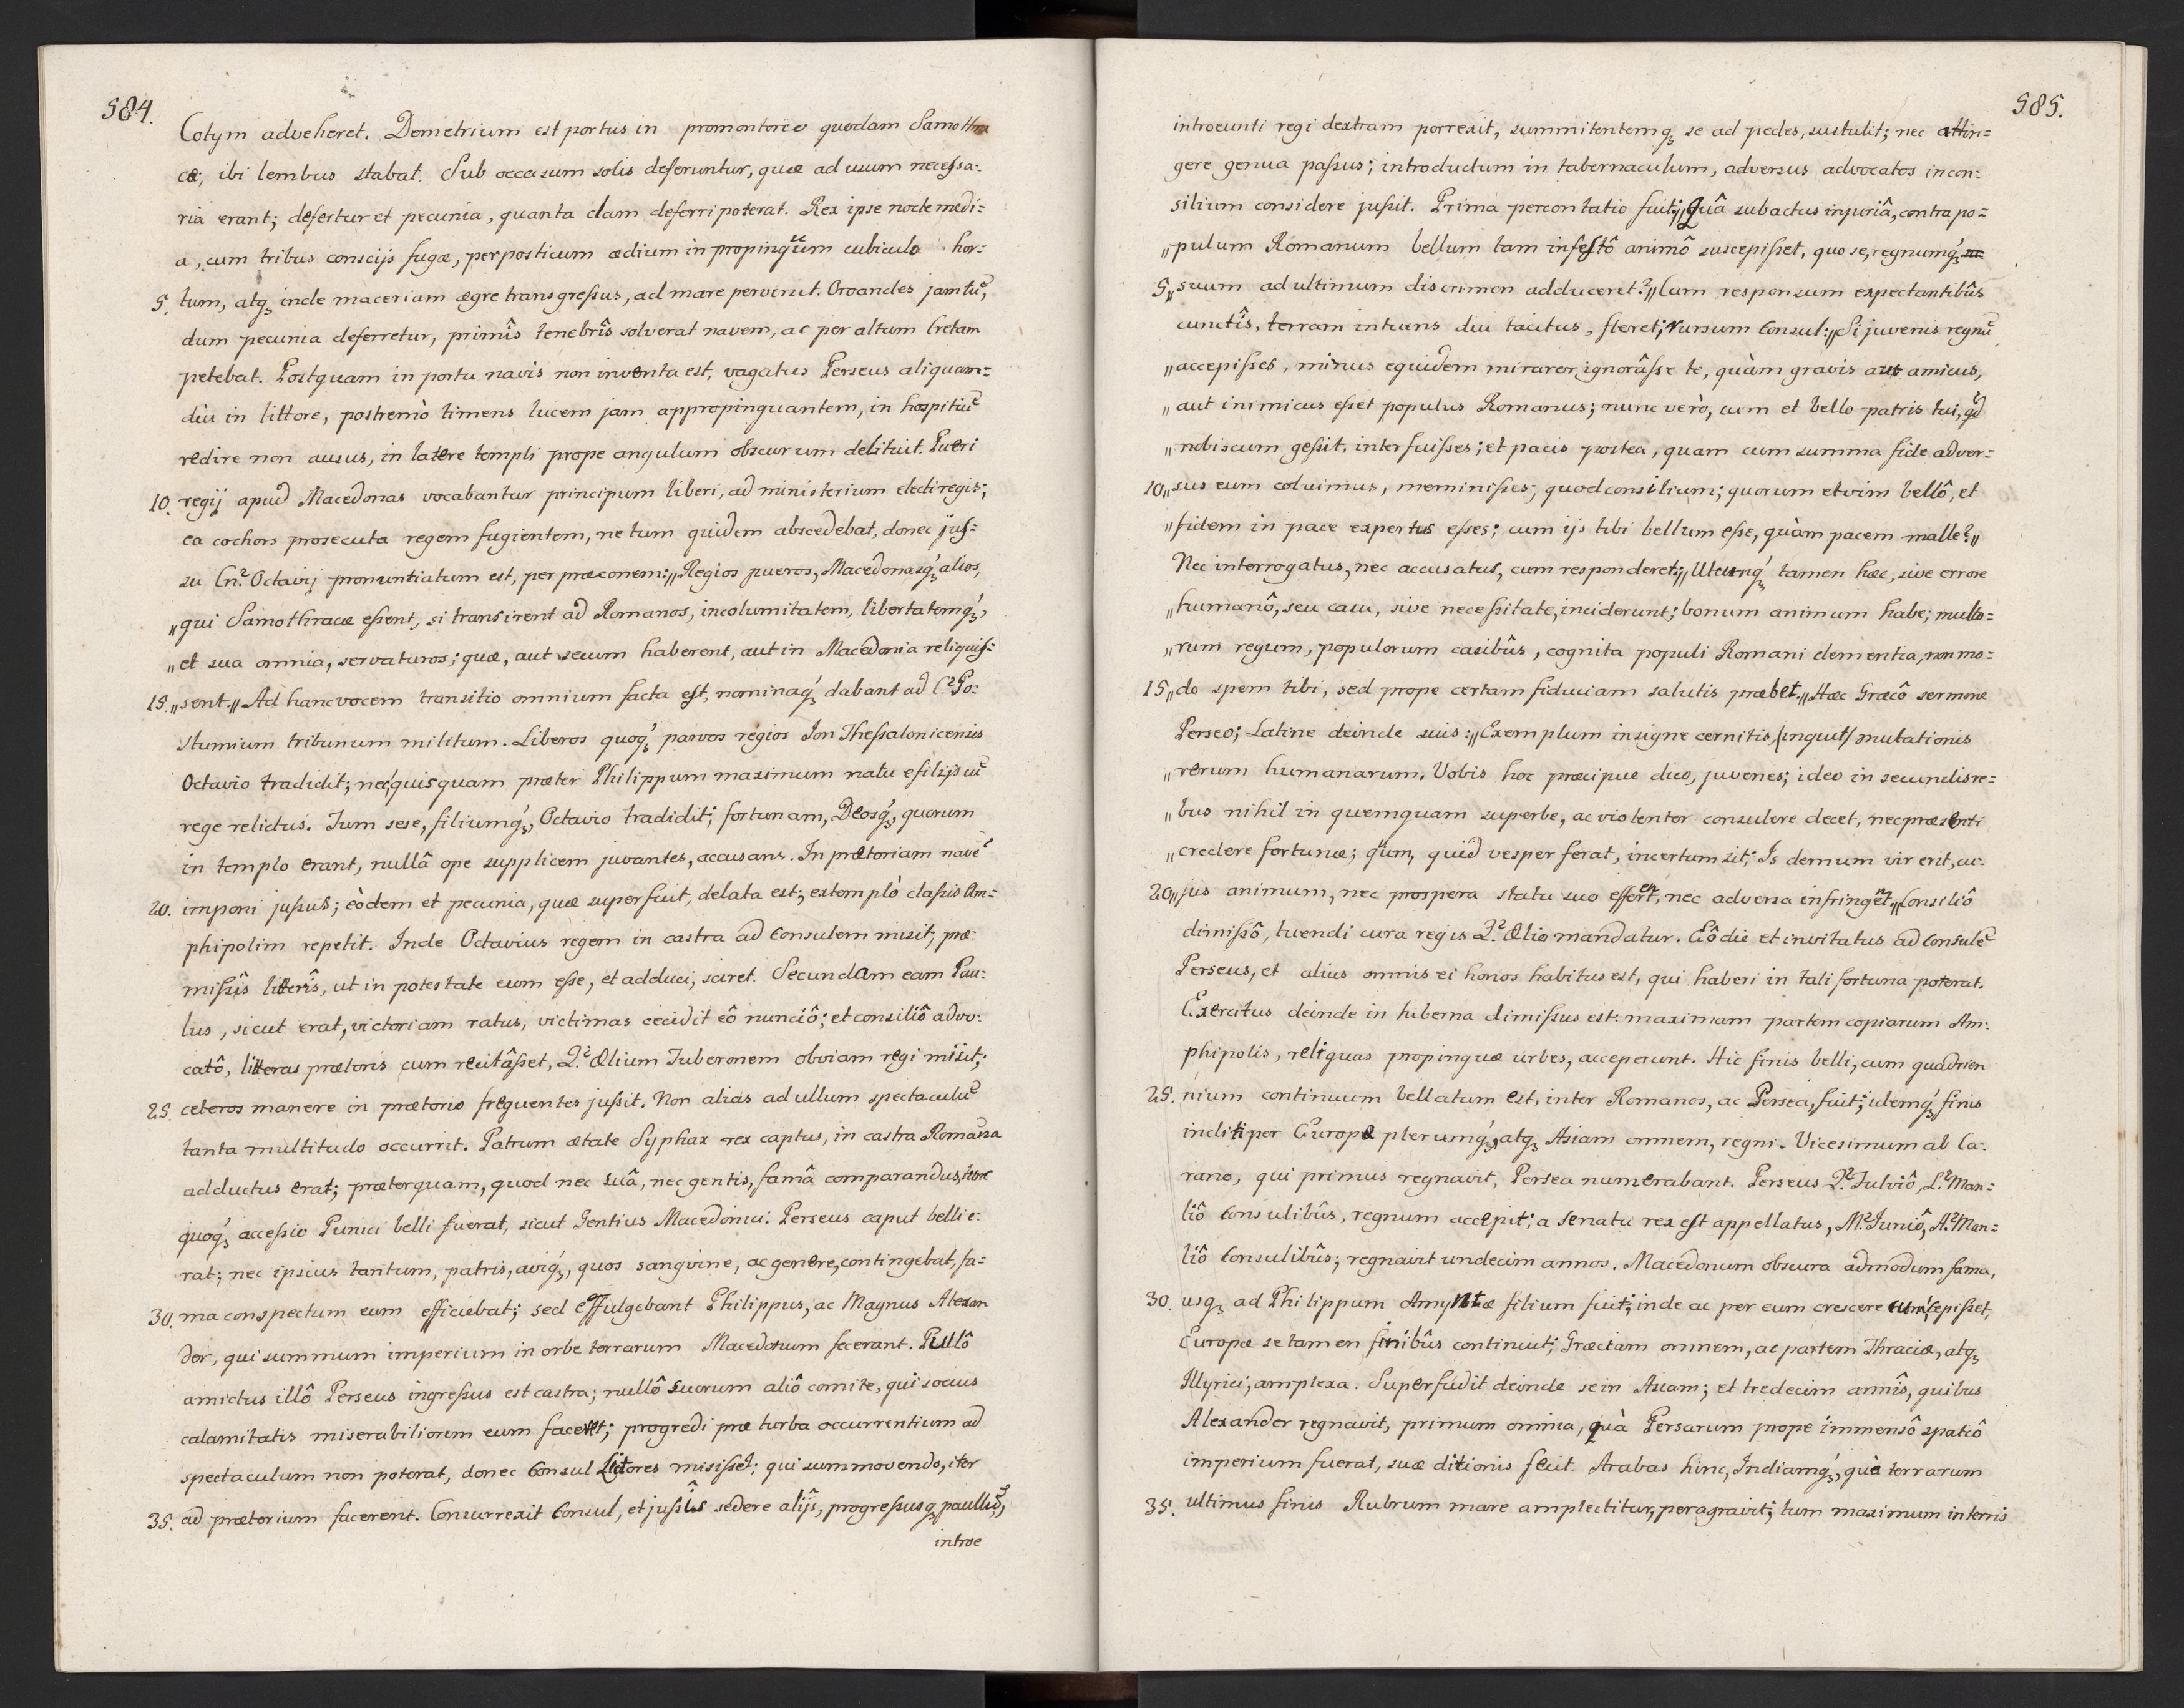 584.
Cotym adveheret. Demetrium est portus in promontorio quodam Samothra
cæ; ibi lembus stabat. Sub occasum solis deferuntur, quæ ad usum necessa:
ria erant; defertur et pecunia, quanta clam deferri poterat. Rex ipse nocte medi:
a, cum tribus conscijs fugæ, per posticum ædium in propinquum cubiculo hor:
5. tum, atq₃ inde maceriam ægre transgressus, ad mare pervenit. Oroandes jam tū,
dum pecunia deferretur, primîs tenebrîs solverat navem, ac per altum Cretam
petebat. Postquam in portu navis non inventa est, vagatus Perseus aliquam=
diu in littore, postremò timens lucem jam appropinquantem, in hospitiū
redire non ausus, in latere templi prope angulum obscurum delituit. Pueri
10. regij apud Macedonas vocabantur principum liberi, ad ministerium electi regis;
ea cochors prosecuta regem fugientem, ne tum quidem abscedebat, donec jus=
su Cn. Octavij pronuntiatum est, per præconem: „Regios pueros, Macedonasq́₃ alios,
„qui Samothracæ essent, si transirent ad Romanos, incolumitatem, libertatemq́₃,
„et sua omnia, servaturos; quæ, aut secum haberent, aut in Macedonia reliquis=
15. „sent.„ Ad hanc vocem transitio omnium facta est, nominaq́₃ dabant ad C. Po:
stumium tribunum militum. Liberos quoq́₃ parvos regios Jon Thessalonicensis
Octavio tradidit; nec quisquam præter Philippum maximum natu e filijs cū
rege relictus. Tum sese, filiumq́₃, Octavio tradidit; fortunam, Deosq́₃, quorum
in templo erant, nullâ ope supplicem juvantes, accusans. In prætoriam navē
20. imponi jussus; eòdem et pecunia, quæ superfuit, delata est; extemplò classis Am=
phipolim repetit. Inde Octavius regem in castra ad Consulem misit, præ:
missîs litterîs, ut in potestate eum esse, et adduci, sciret. Secundam eam Pau:
lus, sicut erat, victoriam ratus, victimas cecidit eô nunciô; et consiliô advo:
catô, litteras prætoris cum recitâsset, Q. Ælium Tuberonem obviam regi misit;
25. ceteros manere in prætorio frequentes jussit. Non alias ad ullum spectaculū
tanta multitudo occurrit. Patrum ætate Syphax rex captus, in castra Romana
adductus erat; præterquam, quod nec suâ, nec gentis, famâ comparandus,
quoq́₃ accessio Punici belli fuerat, sicut Gentius Macedonici. Perseus caput belli e:
rat; nec ipsius tantum, patris, aviq́₃, quos sangvine, ac genere, contingebat, fa=
30. ma conspectum eum efficiebat; sed effulgebant Philippus, ac Magnus Alexan
der, qui summum imperium in orbe terrarum Macedonum fecerant. Pullô
amictus illô Perseus ingressus est castra; nullô suorum aliô comite, qui socius
calamitatis miserabiliorem eum faceret; progredi præ turba occurrentium ad
spectaculum non poterat, donec Consul Lictores misisset; qui summovendo, iter
35. ad prætorium facerent. Consurrexit Consul, et jussîs sedere alîjs, progressusq₃ paullū,
introe
585.
introeunti regi dextram porrexit, summitentemq₃ se ad pedes, sustulit; nec attin=
gere genua passus; introductum in tabernaculum, adversus advocatos in con:
silium considere jussit. Prima percontatio fuit; „Quâ subactus injuriâ, contra po=
„pulum Romanum bellum tam infestô animô suscepisset, quo se, regnumq́₃
5„ suum ad ultimum discrimen adduceret?„ Cum responsum expectantibûs
cunctîs, terram intuens diu tacitus, fleret; rursum Consul: „Si juvenis regnū
„accepisses, minus equidem mirarer, ignorâsse te, quàm gravis aut amicus,
„aut inimicus esset populus Romanus; nunc verò, cum et bello patris tui, qd
„nobiscum gessit, interfuisses; et pacis postea, quam cum summa fide adver=
10„ sus eum coluimus, meminisses; quod consilium; quorum et vim bellô, et
„fidem in pace expertus esses; cum ijs tibi bellum esse, quàm pacem malle?„
Nec interrogatus, nec accusatus, cum responderet; „Utcunq́₃ tamen hæc, sive errore
„humanô, seu casu, sive necessitate, inciderunt; bonum animum habe; multo=
„rum regum, populorum casibûs, cognita populi Romani clementia, non mo=
15„ do spem tibi, sed prope certam fiduciam salutis præbet.„ Hæc Græcô sermone
Perseo; Latine deinde suis: „Exemplum insigne cernitis, /inquit/ mutationis
„rerum humanarum. Vobis hoc præcipue dico, juvenes; ideo in secundis re=
„bus nihil in quemquam superbe, ac violenter consulere decet, nec præsenti
„credere fortunæ; qūm, quid vesper ferat, incertum sit; Is demum vir erit, cu:
20„ jus animum, nec prospera statu suo efferet, nec adversa infringet.„ Consiliô
dimissô, tuendi cura regis Q. Ælio mandatur. Eô die et invitatus ad Consulē
Perseus, et alius omnis ei honos habitus est, qui haberi in tali fortuna poterat.
Exercitus deinde in hiberna dimissus est: maximam partem copiarum Am:
phipolis, reliquas propinquæ urbes, acceperunt. Hic finis belli, cum quadrien
25. nium continuum bellatum est, inter Romanos, ac Persea, fuit; idemq́₃ finis
incliti per Europæ plerumq́₃, atq₃ Asiam omnem, regni. Vicesimum ab Ca:
rano, qui primus regnavit, Persea numerabant. Perseus Q. Fulviô, L. Man=
liô Consulibûs, regnum accepit; a Senatu rex est appellatus, M. Juniô, A. Man=
liô Consulibûs; regnavit undecim annos. Macedonum obscura admodum fama,
30. usq₃ ad Philippum Amyntæ filium fuit; inde ac per eum crescere cum cepisset,
Europæ se tamen finibûs continuit; Græciam omnem, ac partem Thraciæ, atq₃
Illyrici, amplexa. Superfudit deinde se in Asiam; et tredecim annîs, quibus
Alexander regnavit, primum omnia, quà Persarum prope immensô spatiô
imperium fuerat, suæ ditionis fecit. Arabas hinc, Indiamq́₃, quà terrarum
35. ultimus finis Rubrum mare amplectitur, peragravit; tum maximum in terris